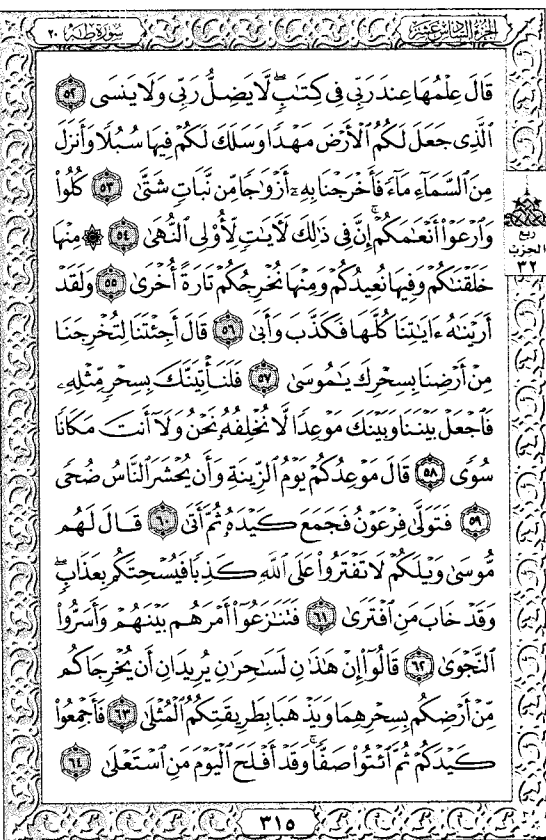 الجزء السادس عشر
سورة طه ٢٠
قَالَ عِلْمُهَا عِندَ رَبِّى فِى كِتَٰبٍۖ لَّا يَضِلُّ رَبِّى وَلَا يَنسَى ٥٢
ٱلَّذِى جَعَلَ لَكُمُ ٱلْأَرْضَ مَهْدًا وَسَلَكَ لَكُمْ فِيهَا سُبُلًا وَأَنزَلَ
مِنَ ٱلسَّمَآءِ مَآءً فَأَخْرَجْنَا بِهِۦٓ أَزْوَٰجًا مِّن نَّبَاتٍ شَتَّىٰ ٥٣ كُلُوا۟
وَٱرْعَوْا۟ أَنْعَٰمَكُمْۗ إِنَّ فِى ذَٰلِكَ لَءَايَٰتٍ لِّأُو۟لِى ٱلنُّهَىٰ ٥٤ ۞ مِنْهَا
خَلَقْنَٰكُمْ وَفِيهَا نُعِيدُكُمْ وَمِنْهَا نُخْرِجُكُمْ تَارَةً أُخْرَىٰ ٥٥ وَلَقَدْ
أَرَيْنَٰهُ ءَايَٰتِنَا كُلَّهَا فَكَذَّبَ وَأَبَىٰ ٥٦ قَالَ أَجِئْتَنَا لِتُخْرِجَنَا
مِنْ أَرْضِنَا بِسِحْرِكَ يَٰمُوسَىٰ ٥٧ فَلَنَأْتِيَنَّكَ بِسِحْرٍ مِّثْلِهِۦ
فَٱجْعَلْ بَيْنَنَا وَبَيْنَكَ مَوْعِدًا لَّا نُخْلِفُهُۥ نَحْنُ وَلَآ أَنتَ مَكَانًا
سُوًى ٥٨ قَالَ مَوْعِدُكُمْ يَوْمُ ٱلزِّينَةِ وَأَن يُحْشَرَ ٱلنَّاسُ ضُحًى
٥٩ فَتَوَلَّىٰ فِرْعَوْنُ فَجَمَعَ كَيْدَهُۥ ثُمَّ أَتَىٰ ٦٠ قَالَ لَهُم
مُّوسَىٰ وَيْلَكُمْ لَا تَفْتَرُوا۟ عَلَى ٱللَّهِ كَذِبًا فَيُسْحِتَكُم بِعَذَابٍۖ
وَقَدْ خَابَ مَنِ ٱفْتَرَىٰ ٦١ فَتَنَٰزَعُوٓا۟ أَمْرَهُم بَيْنَهُمْ وَأَسَرُّوا۟
ٱلنَّجْوَىٰ ٦٢ قَالُوٓا۟ إِنْ هَٰذَٰنِ لَسَٰحِرَٰنِ يُرِيدَانِ أَن يُخْرِجَاكُم
مِّنْ أَرْضِكُم بِسِحْرِهِمَا وَيَذْهَبَا بِطَرِيقَتِكُمُ ٱلْمُثْلَىٰ ٦٣ فَأَجْمِعُوا۟
كَيْدَكُمْ ثُمَّ ٱئْتُوا۟ صَفًّاۚ وَقَدْ أَفْلَحَ ٱلْيَوْمَ مَنِ ٱسْتَعْلَىٰ ٦٤
ربع
الحزب
٣٢
٣١٥